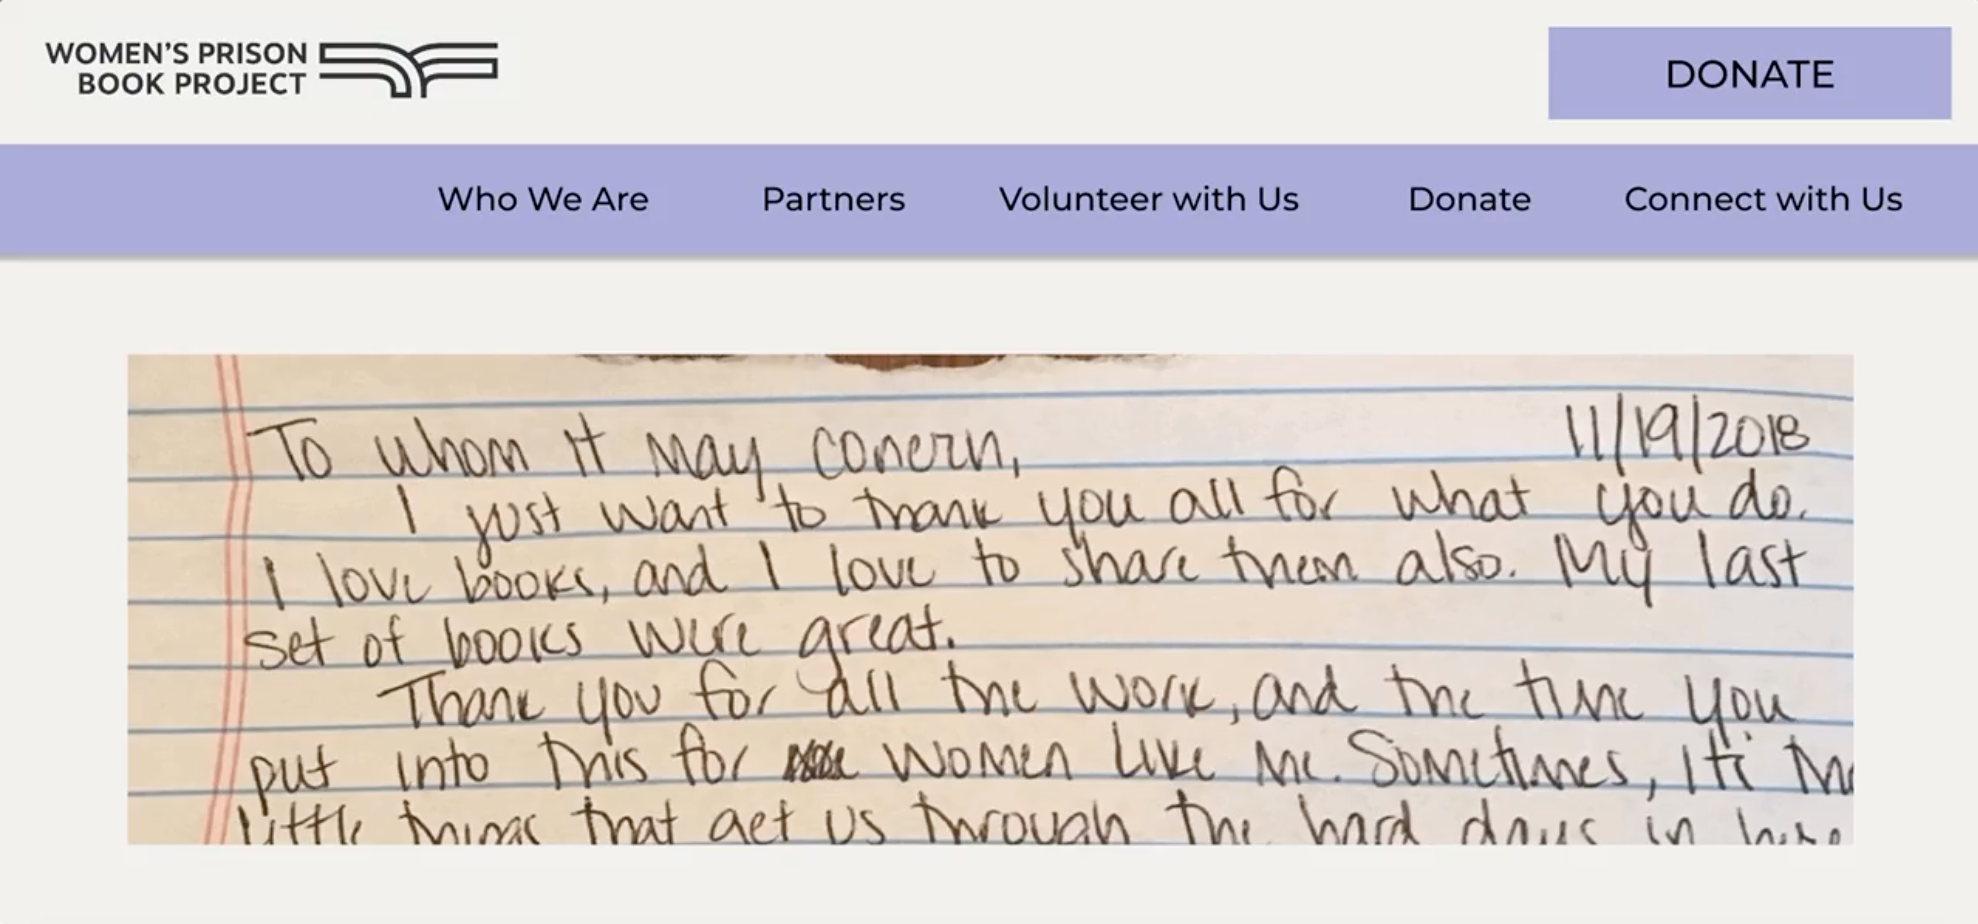 WOMEN'S PRISON
BOOK PROJECT
DONATE
Who We Are
Partners
Volunteer with Us
Donate
Connect with Us
11/19/2018
To whom it may conern,
I just want to thank you all for what you do.
I love books, and I love to share them also. My last
set of books were great.
Thank you for all the work, and the time you
put into this for women like me. Sometimes, it's the
little things that get us through the hard days in here